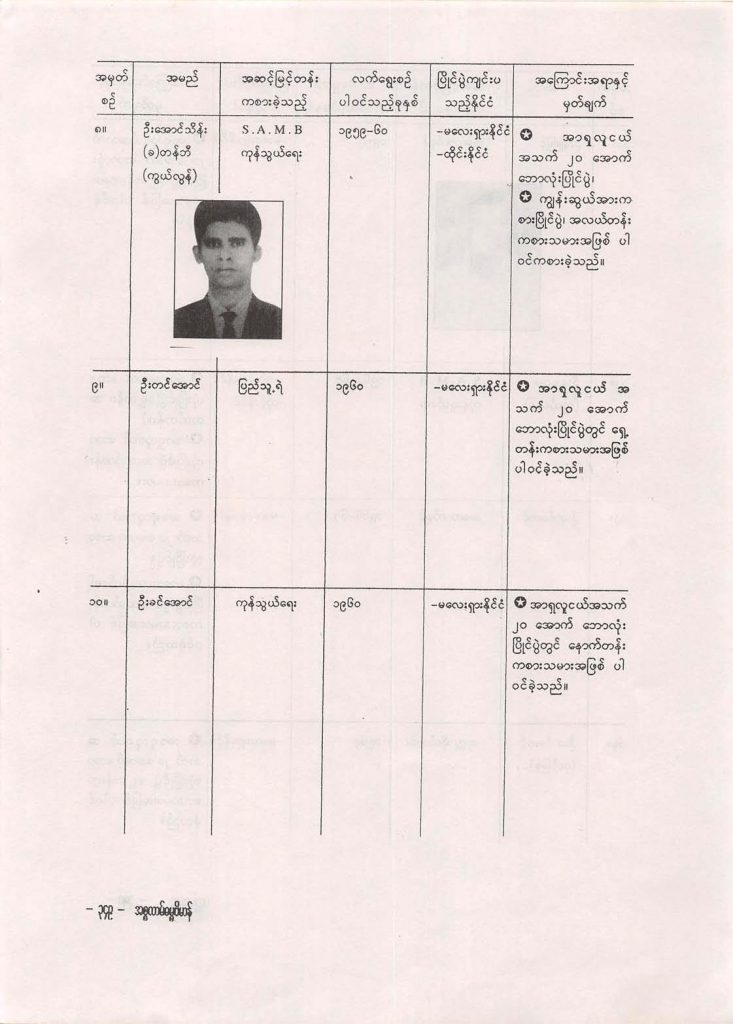 အမှတ် အမည် အဆင့်မြင့်တန်း လက်ရွေးစဉ် ပြိုင်ပွဲကျင်းပ အကြောင်းအရာနှင့်
စဉ် ကစားခဲ့သည့် ပါဝင်သည့်ခုနှစ် သည့်နိုင်ငံ မှတ်ချက်
၈။ ဦးအောင်သိန်း S.A.M.B ၁၉၅၉-၆၀ -မလေးရှားနိုင်ငံ ✪ အာရှလူငယ်
(ခ)တန်ဘီ ကုန်သွယ်ရေး -ထိုင်းနိုင်ငံ အသက် ၂၀ အောက်
(ကွယ်လွန်) ဘောလုံးပြိုင်ပွဲ၊
✪ ကျွန်းဆွယ်အားက
စားပြိုင်ပွဲ၊ အလယ်တန်း
ကစားသမားအဖြစ် ပါ
ဝင်ကစားခဲ့သည်။
၉။ ဦးတင်အောင် ပြည်သူ့ရဲ ၁၉၆၀ -မလေးရှားနိုင်ငံ ✪ အာရှလူငယ် အ
သက် ၂၀ အောက်
ဘောလုံးပြိုင်ပွဲတွင် ရှေ့
တန်းကစားသမားအဖြစ်
ပါဝင်ခဲ့သည်။
၁၀။ ဦးခင်အောင် ကုန်သွယ်ရေး ၁၉၆၀ -မလေးရှားနိုင်ငံ ✪ အာရှလူငယ်အသက်
၂၀ အောက် ဘောလုံး
ပြိုင်ပွဲတွင် နောက်တန်း
ကစားသမားအဖြစ် ပါ
ဝင်ခဲ့သည်။